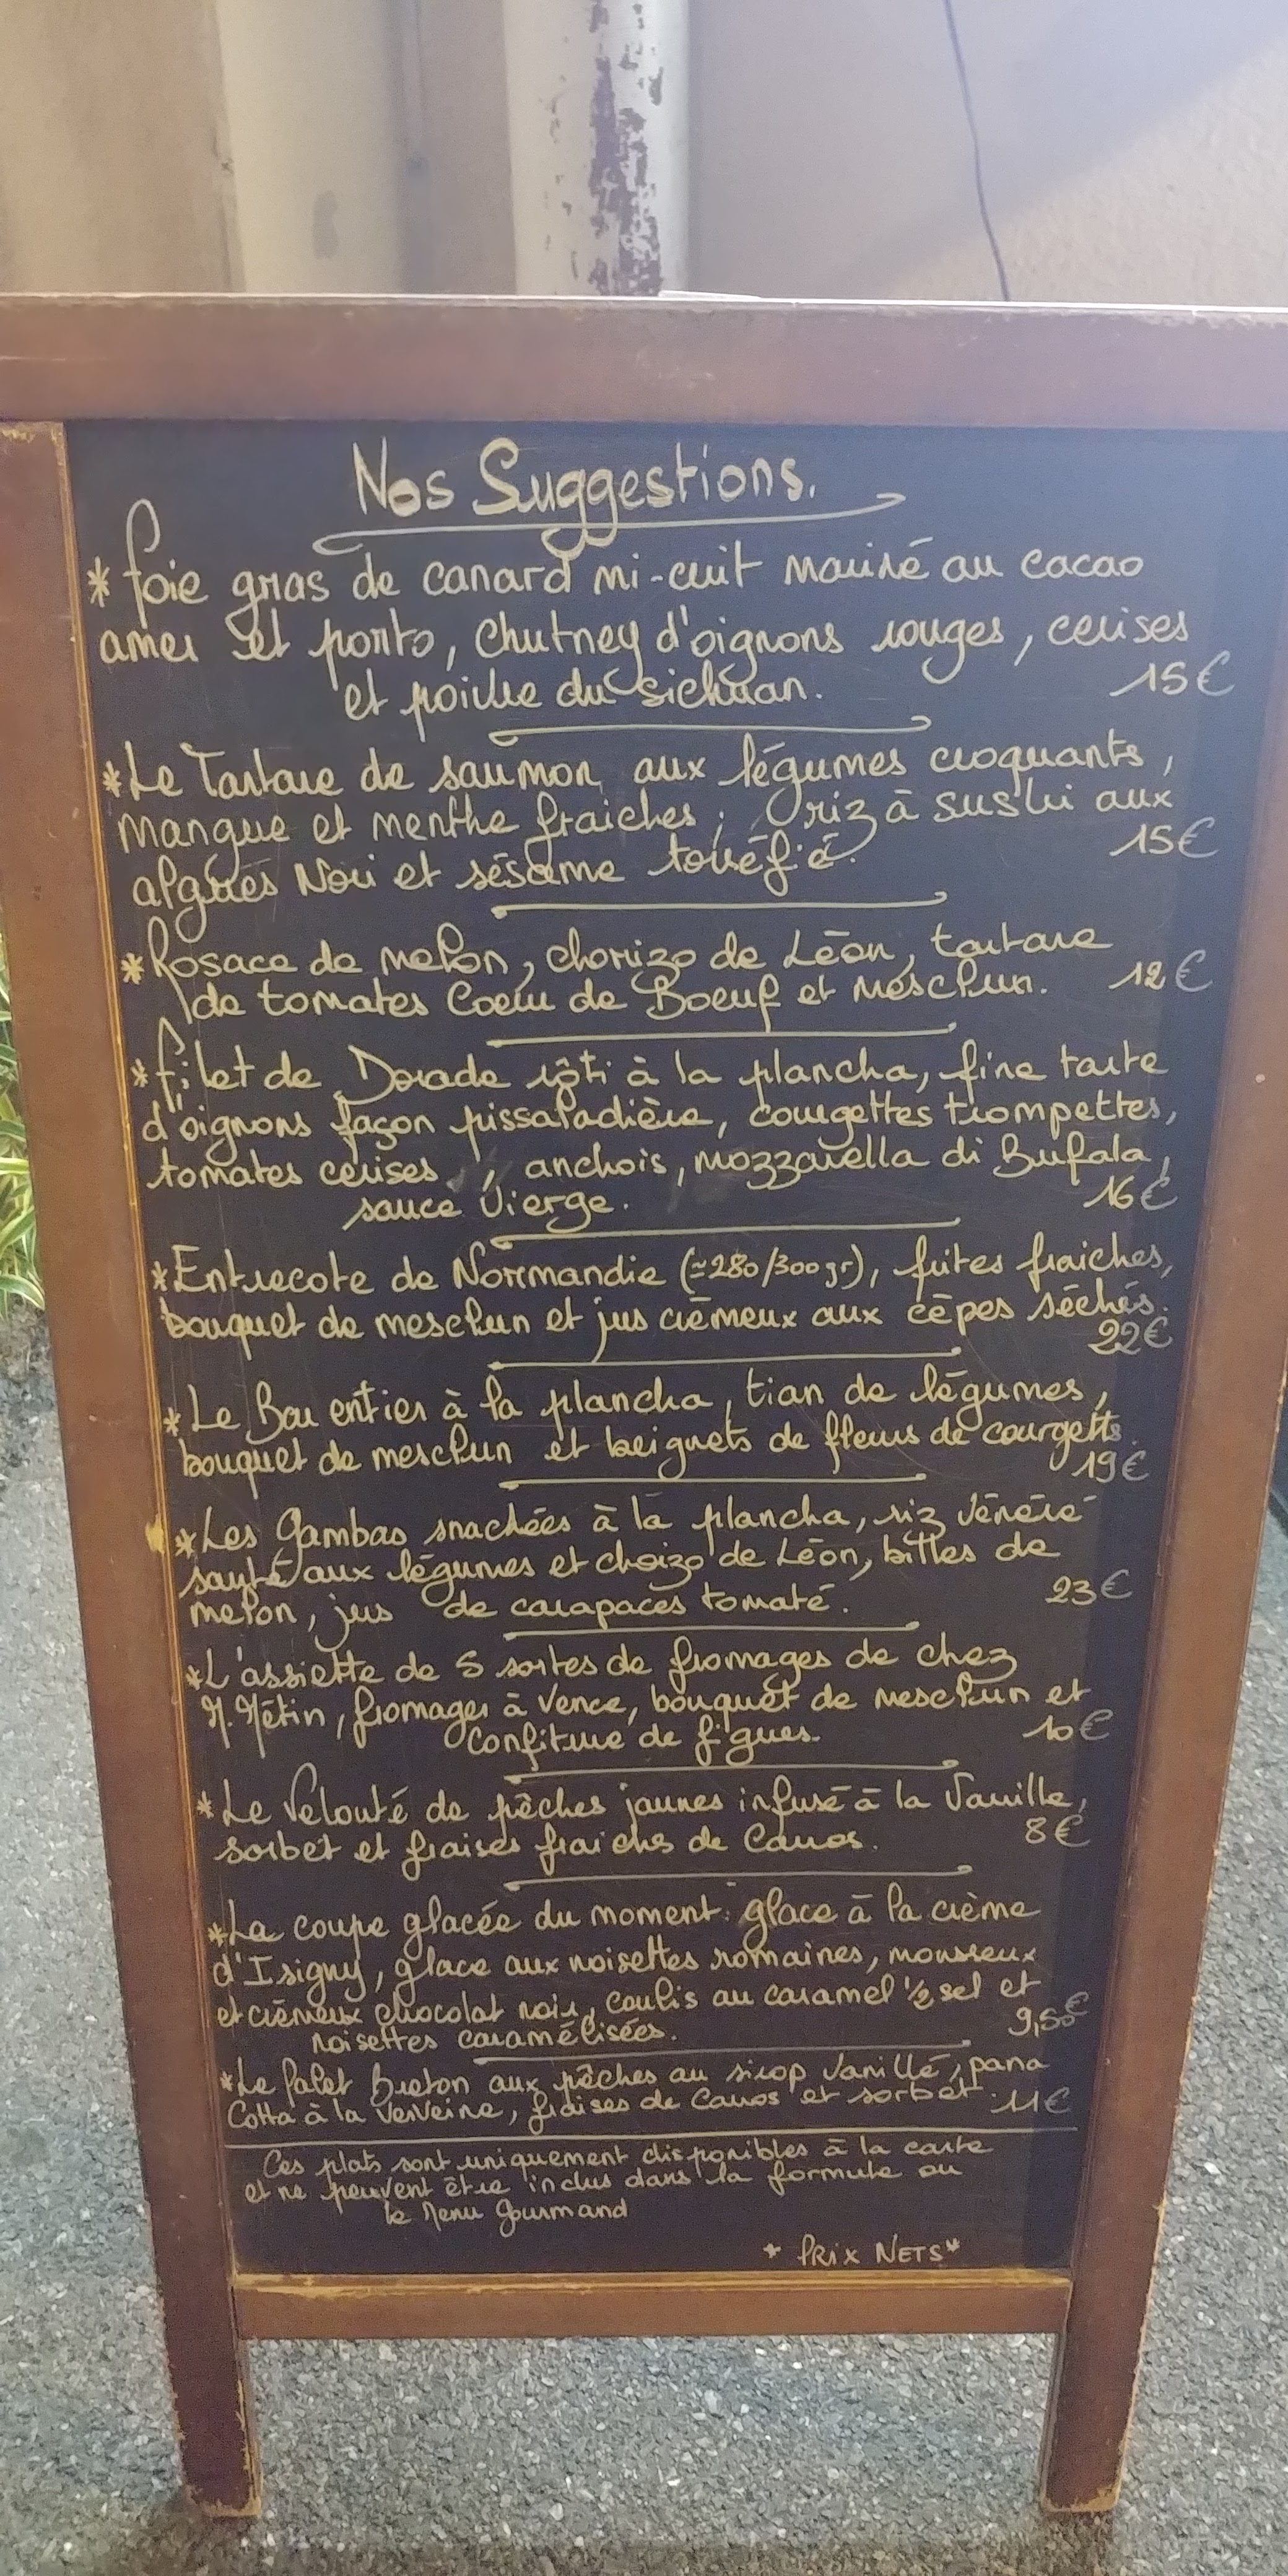 Nos Suggestions.
* foie gras de canard mi-cuit mariné au cacao
amer et porto, chutney d'oignons rouges, cerises
et poivre du sichuan.
15€
*Le Tartare de saumon aux légumes croquants,
mangue et menthe fraiches, riz à sushi aux
algues Nori et sésame torréfié.
15€
*Rosace de melon, chorizo de Léon, tartare
de tomates Coeur de Boeuf et mesclun. 12€
*filet de Dorade rôti à la plancha, fine tarte
d'oignons façon pissaladière, courgettes trompettes,
tomates cerises, anchois, mozzarella di Bufala,
sauce Vierge.
16€
*Entrecote de Normandie (≃280/300gr), frites fraiches,
bouquet de mesclun et jus crémeux aux cèpes séchés.
22€
*Le Bar entier à la plancha, tian de légumes,
bouquet de mesclun et beignets de fleurs de courgetts.
19€
*Les Gambas snackées à la plancha, riz vénéré
sauté aux légumes et choizo de Léon, billes de
melon, jus de carapaces tomaté.
23€
*L'assiette de 5 sortes de fromages de chez
M. Métin, fromager à Vence, bouquet de mesclun et
confiture de figues.
10€
*Le Velouté de pêches jaunes infusé à la Vanille,
sorbet et fraises fraiches de Carros.
8€
*La coupe glacée du moment: glace à la crème
d'Isigny, glace aux noisettes romaines, mousseux
et crémeux chocolat noir, coulis au caramel 1/2 sel et
noisettes caramélisées.
9,50€
*Le Palet breton aux pêches au sirop vanillé, pana
Cotta à la Verveine, fraises de Carros et sorbet. 11€
Ces plats sont uniquement disponibles à la carte
et ne peuvent être inclus dans la formule ou
le Menu Gourmand
* PRIX NETS*